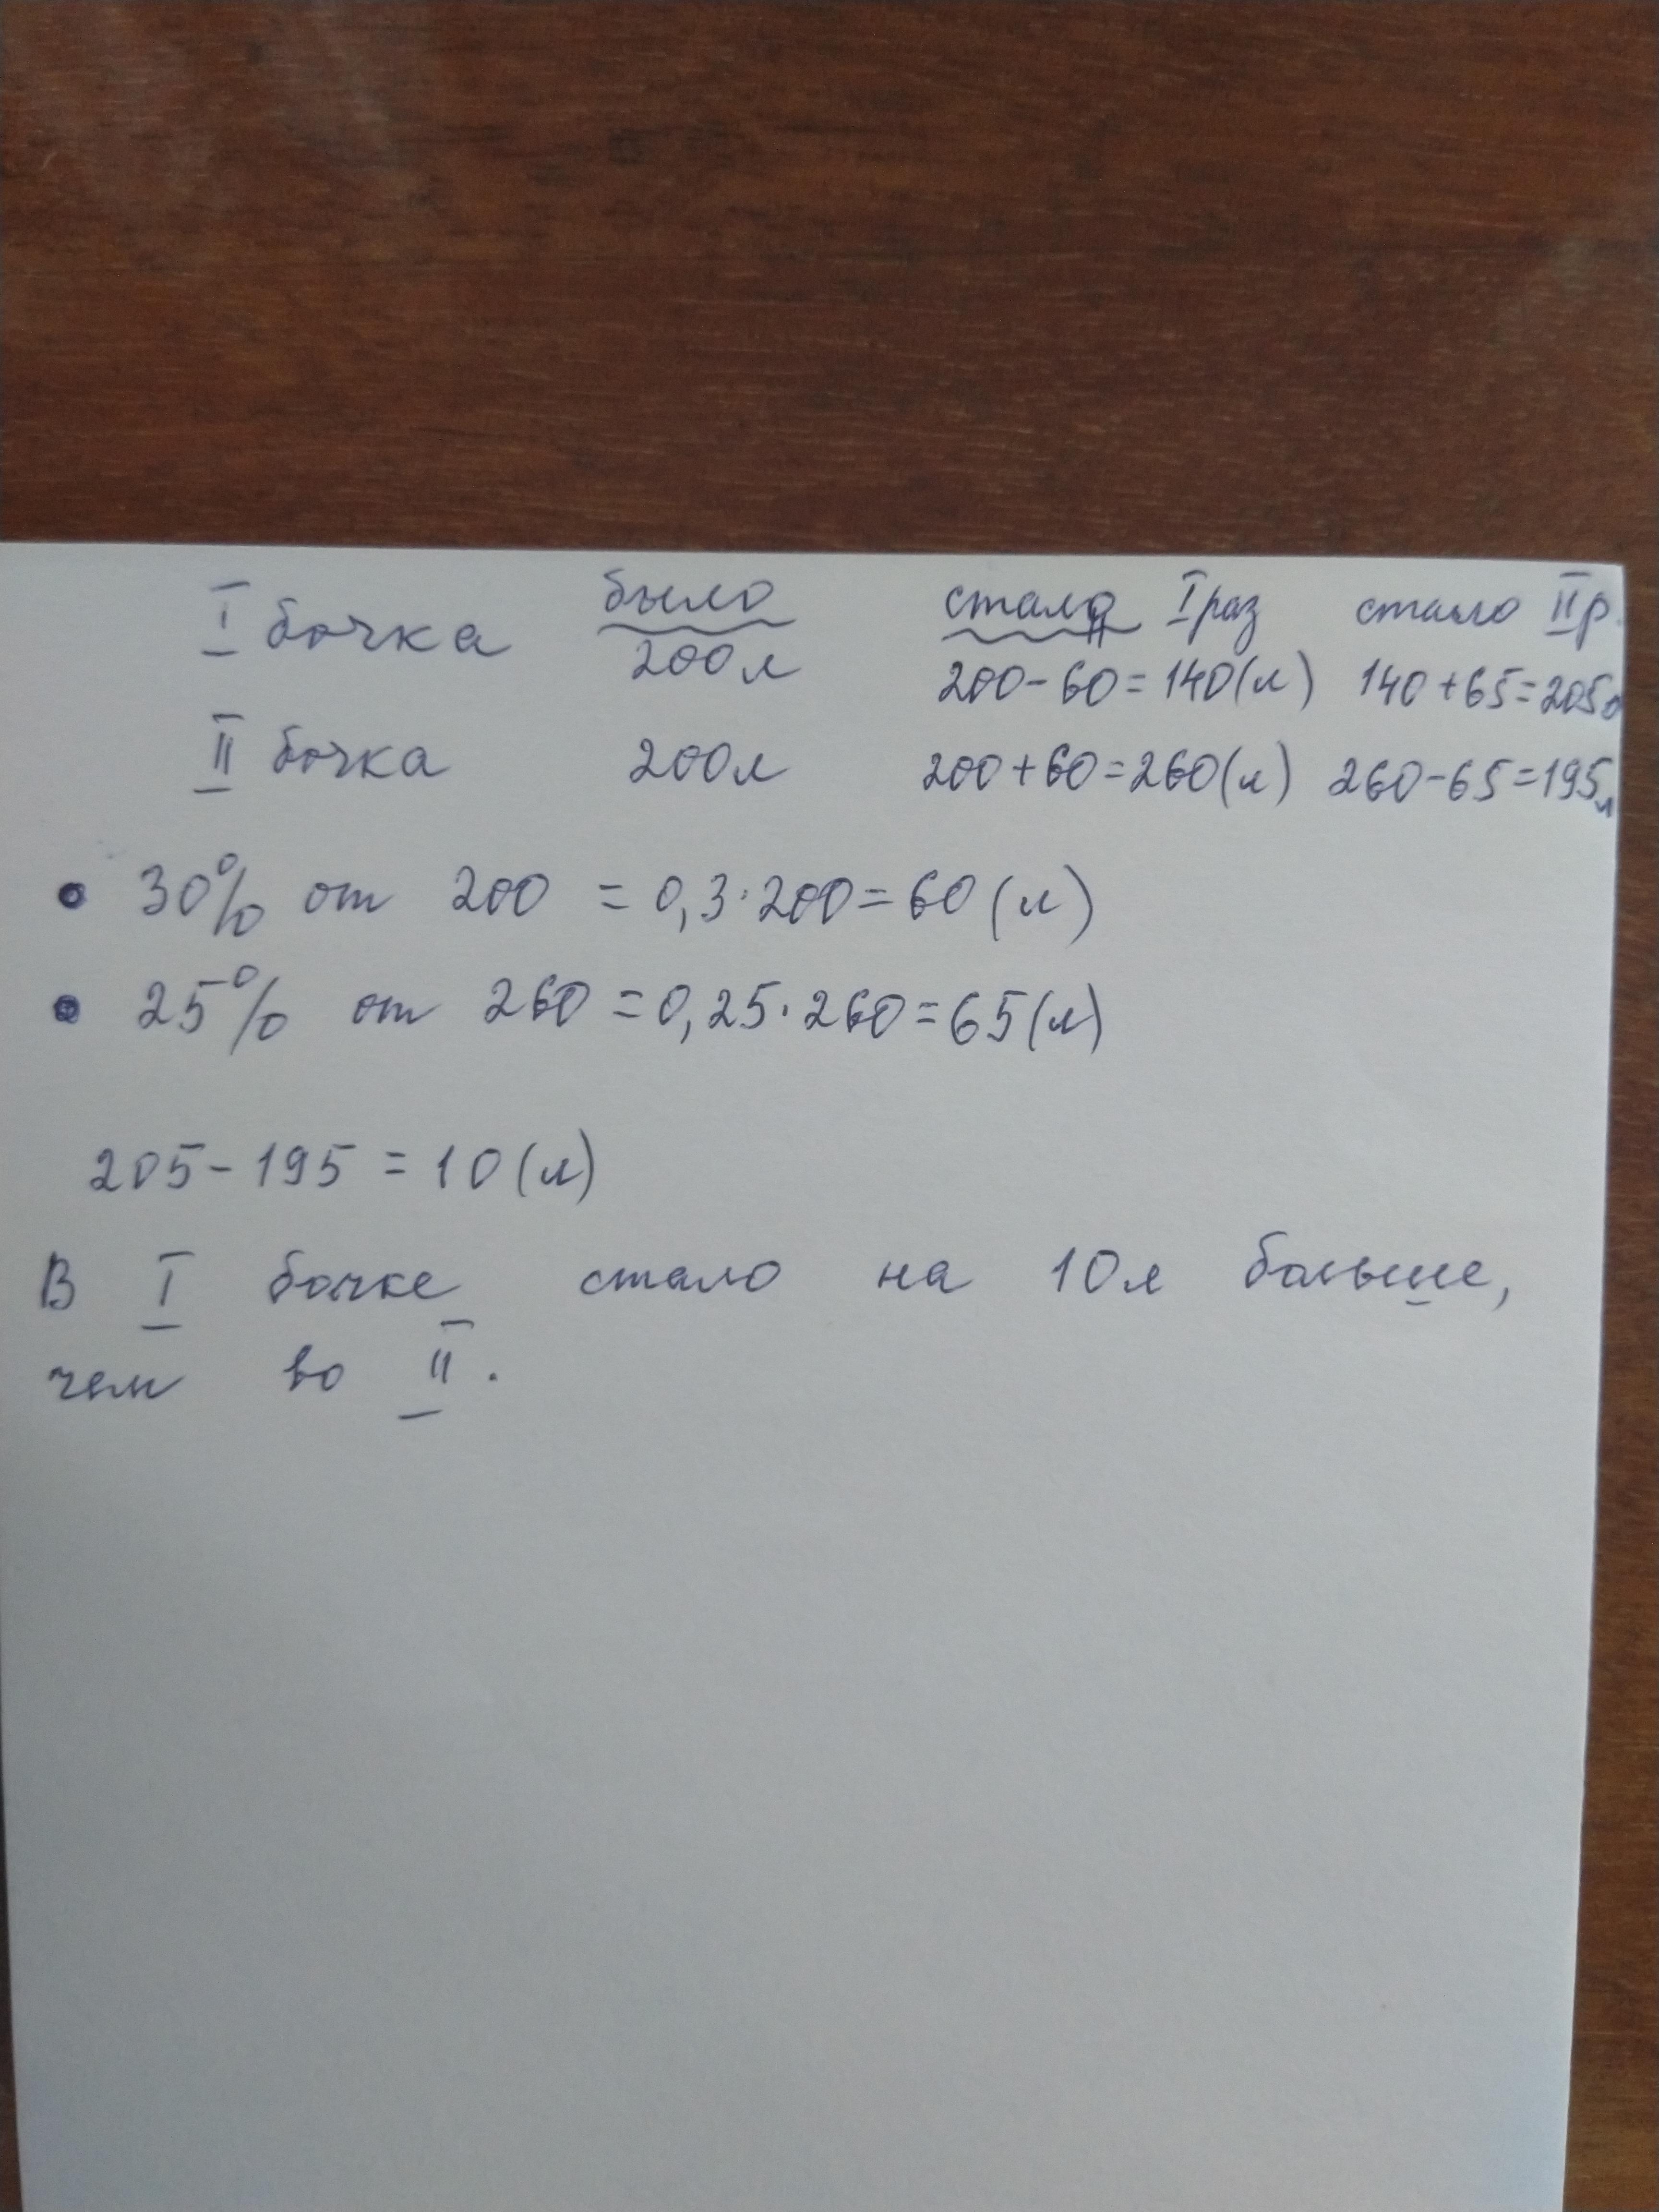 I бочка было стало I раз стало II р.
200л 200-60=140(л) 140+65=205л
II бочка 200л 200+60=260(л) 260-65=195л
• 30% от 200 = 0,3·200=60(л)
• 25% от 260 =0,25·260=65(л)
205-195=10(л)
В I бочке стало на 10л больше,
чем во II.